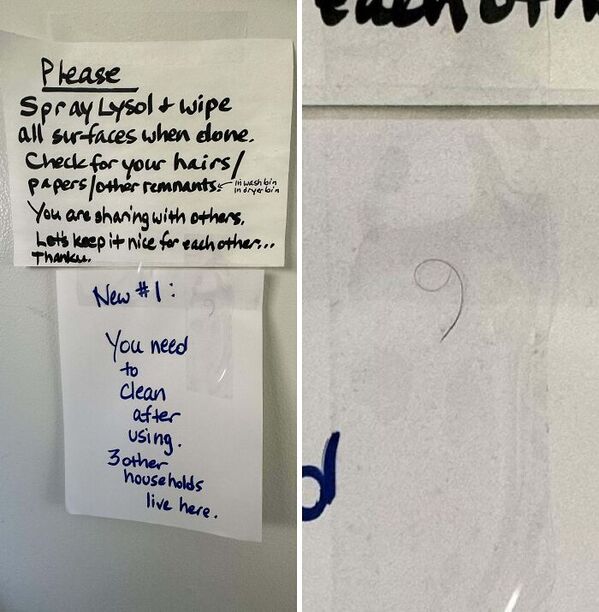 Please
Spray Lysol + wipe
all surfaces when done.
Check for your hairs/
papers/other remnants. ← in wash bin
in dryer bin
You are sharing with others.
Let's keep it nice for each other...
Thanku.
New #1:
You need
to
clean
after
using.
3 other
households
live here.
each oth
d